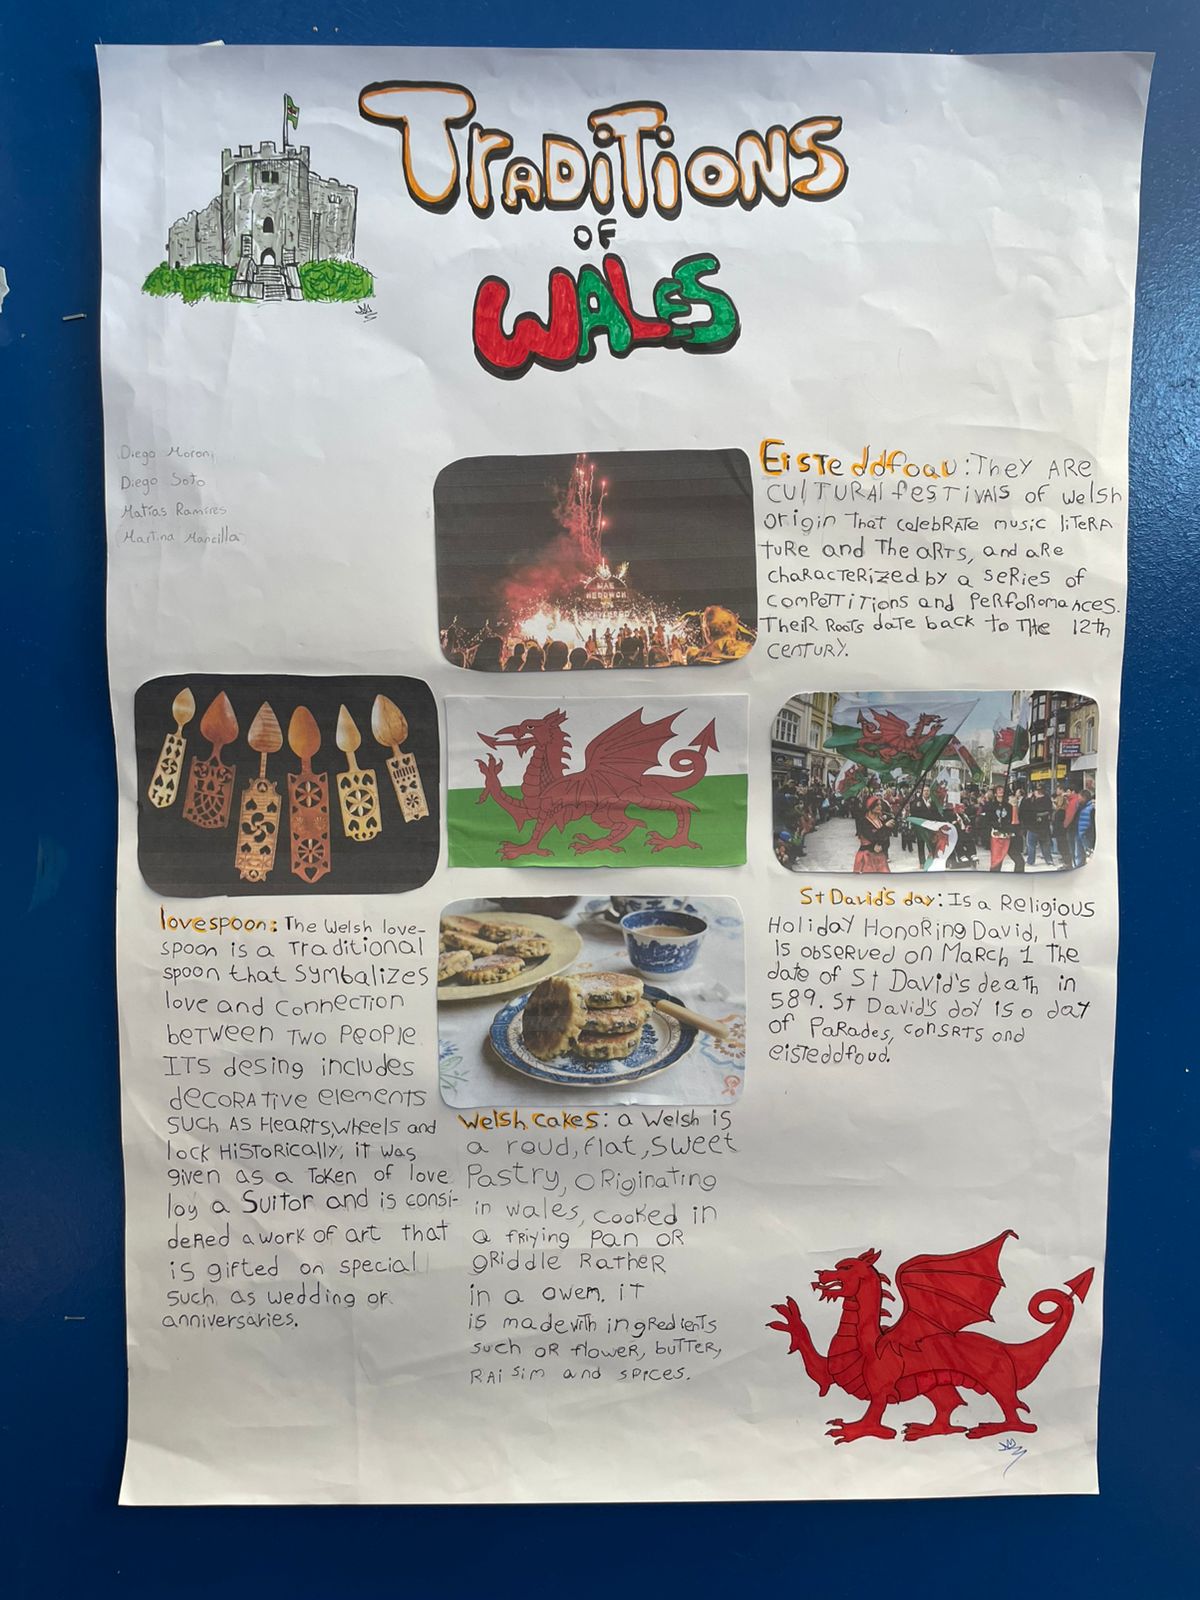 TRADITIONS
OF
WALES
Diego Moroni
Diego Soto
Matías Ramires
Martina Mancilla
Eisteddfoau: They ARE
CULTURAl fesTivAls of welsh
origin That celebRATe music liTeRA
tuRe and The aRTs, and aRe
chaRacTeRized by a seRies of
compeTTiTions and PeRfoRomances.
TheiR Roots date back to The 12th
century.
lovespoon: The Welsh love-
spoon is a Traditional
spoon that symbalizes
love and connection
between Two People.
ITs desing includes
decoRaTive elements
such As HeaRts,wheels and
lock HisToRically, it was
given as a Token of love
loy a Suitor and is consi-
deRed a work of art that
is gifted on special
such as wedding or
anniversaries.
St David's day: Is a Religious
Holiday HonoRing David, It
is observed on MaRch 1 The
date of St David's death in
589. St David's doy is o day
of PaRades, consRts and
eisteddfoud.
Welsh cakes: a Welsh is
a roud, flat, sweet
Pastry, oRiginating
in wales, cooked in
a friying pan oR
gRiddle RatheR
in a owen. iT
is made with ingRedients
such oR flower, butTeR,
RAisim and spices.